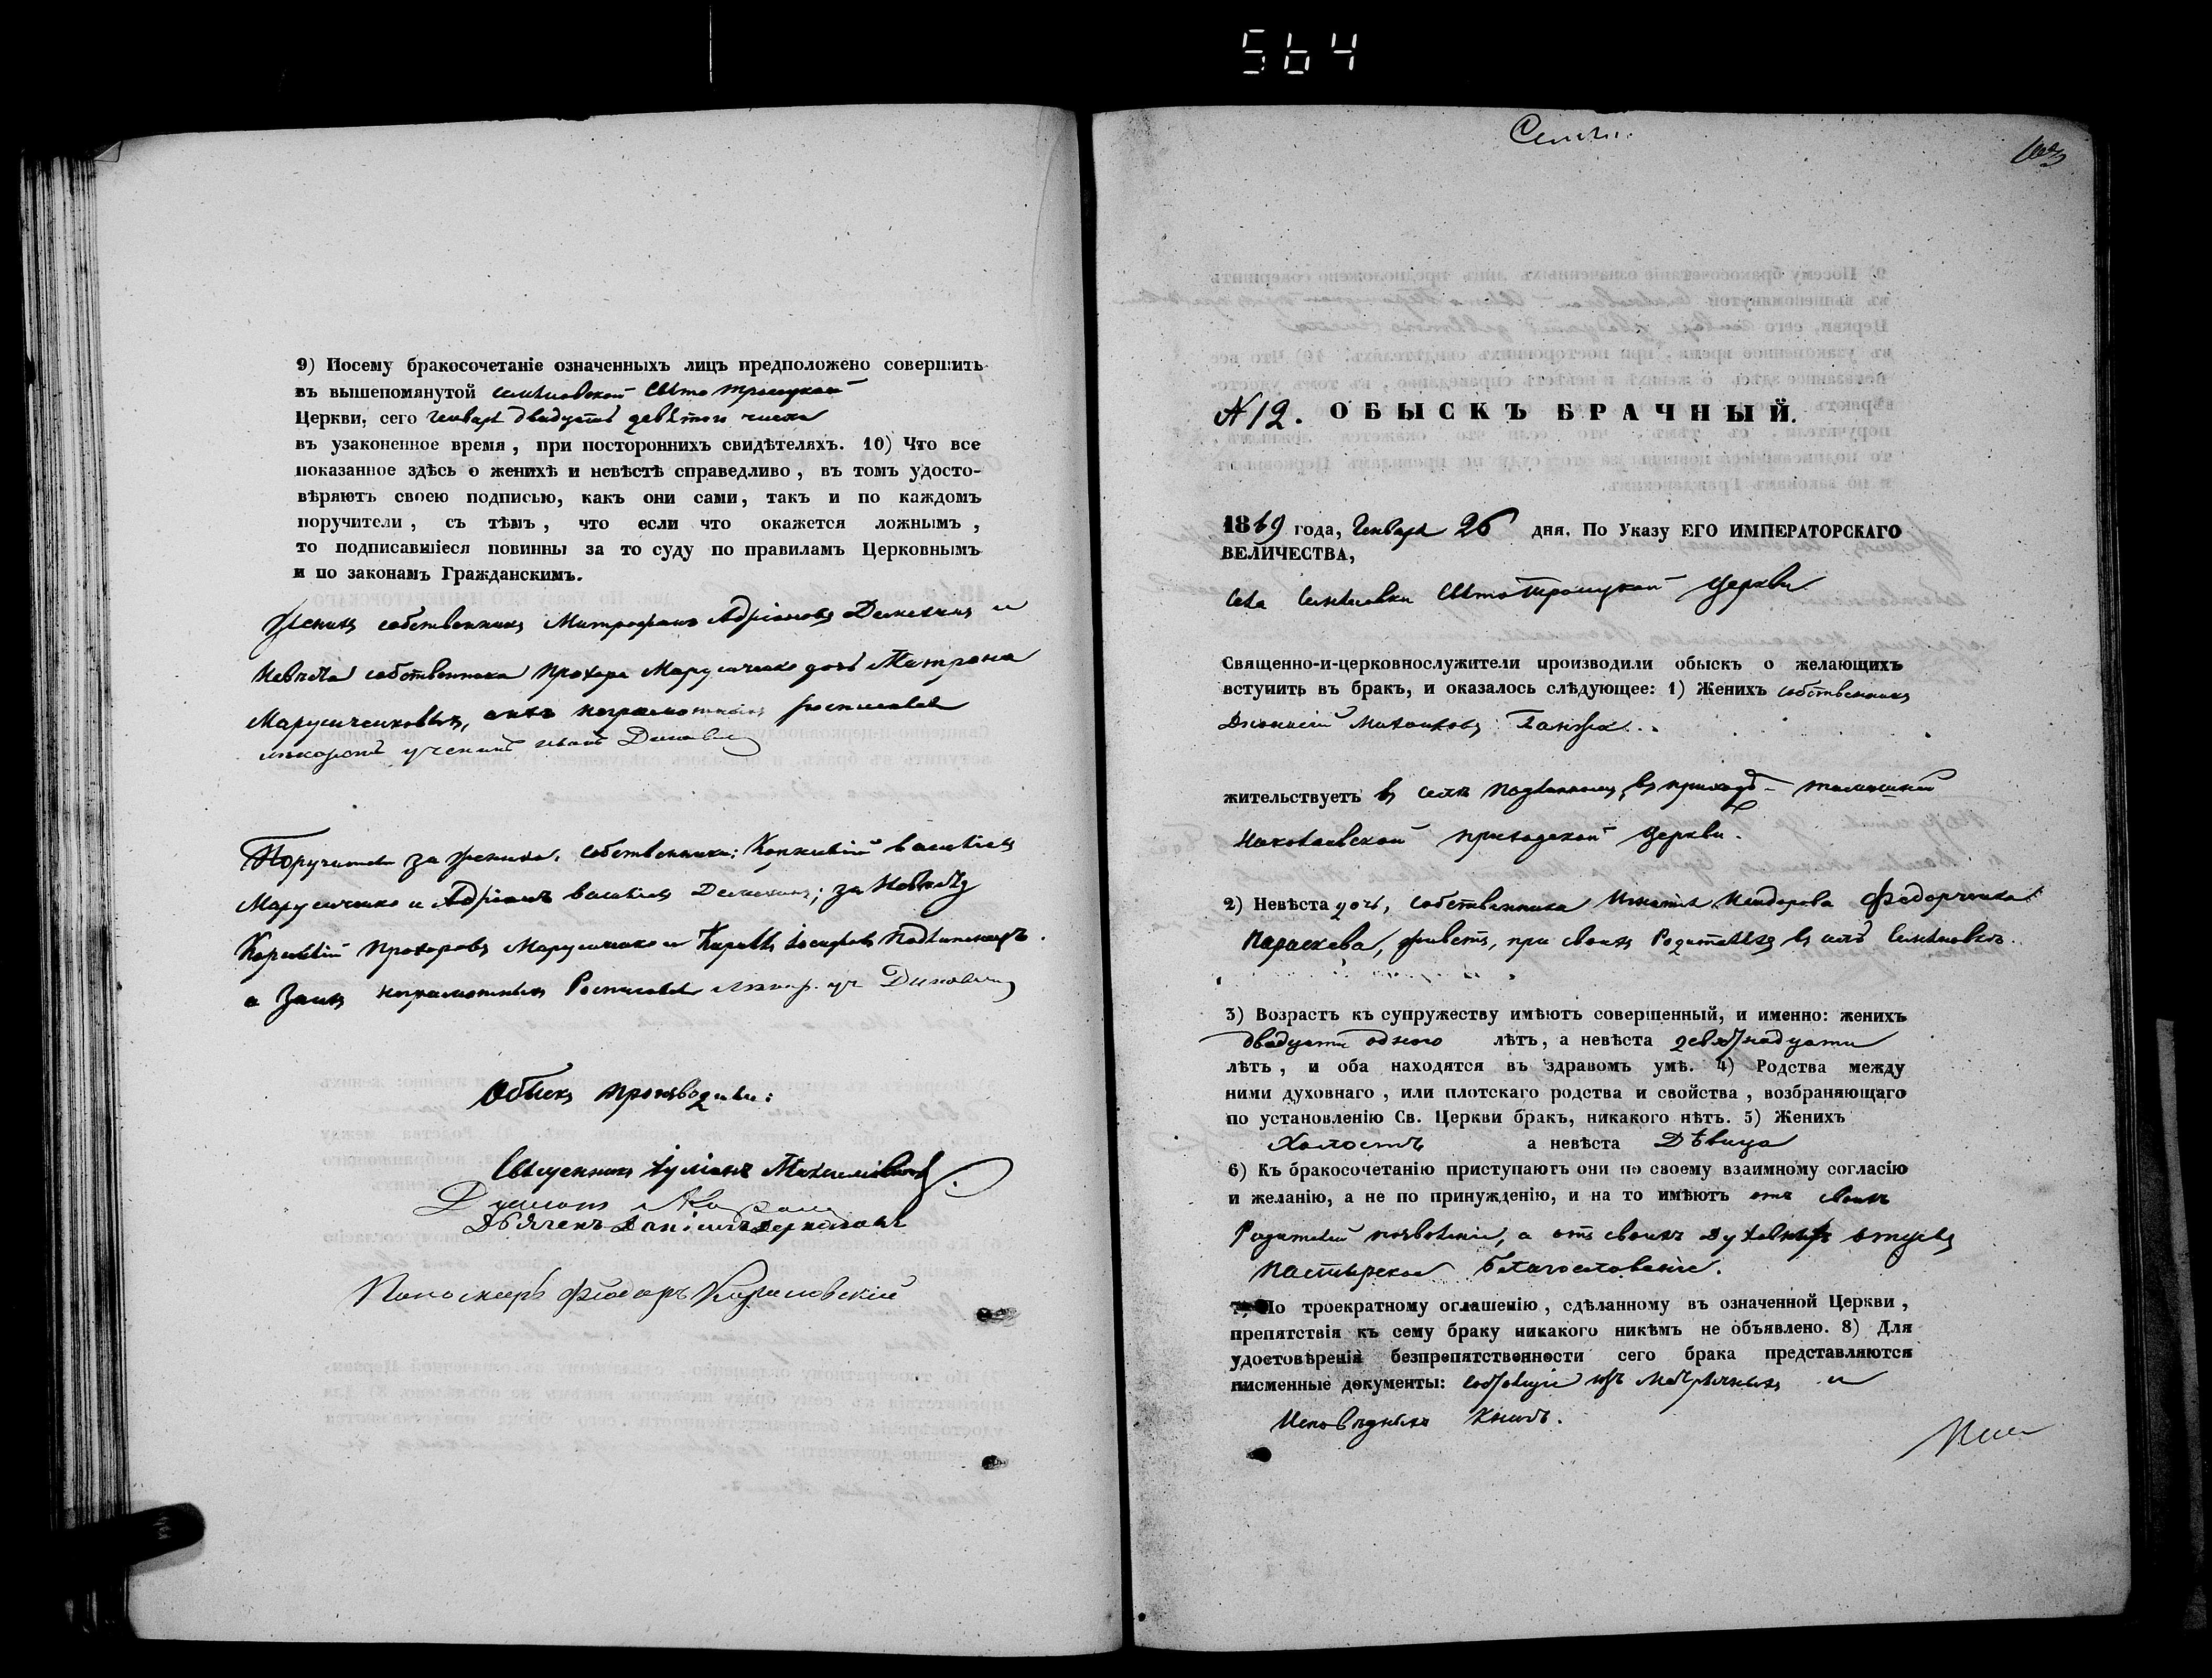 564
9) Посему бракосочетаніе означенныхъ лицъ предположено совершить
въ вышепомянутой Семеновской Свято Троицкой
Церкви, сего Генваря двадцать девятого числа
въ узаконенное время, при постороннихъ свидѣтеляхъ. 10) Что все
показанное здѣсь о женихѣ и невѣстѣ справедливо, въ томъ удосто-
вѣряютъ своею подписью, какъ они сами, такъ и по каждомъ
поручители, съ тѣмъ, что если что окажется ложнымъ,
то подписавшіеся повинны за то суду по правиламъ Церковнымъ
и по законамъ Гражданскимъ.
Женихъ собственникъ Митрофанъ Адріановъ и
Невѣста собственника Прохора Марусиченко дочь Матрона
Марусиченкова,
ученикъ
Поручители за жениха: собственники:
Марусиченко и Адріанъ за невѣсту
Прохоровъ Марусиченко и Кириллъ Іосифовъ
а за нихъ неграмотныхъ
Обыскъ производили:
Священникъ Іуліанъ
Дьяченъ Даніилъ
Пономарь Феодоръ
№ 12. ОБЫСКЪ БРАЧНЫЙ.
1869 года, Генваря 26 дня. По Указу ЕГО ИМПЕРАТОРСКАГО
ВЕЛИЧЕСТВА,
Села Семеновки Свято Троицкой Церкви
Священно-и-церковнослужители производили обыскъ о желающихъ
вступить въ бракъ, и оказалось слѣдующее: 1) Женихъ собственникъ
Діонисій
жительствуетъ въ селѣ въ приходѣ
Николаевской приходской Церкви.
2) Невѣста дочь, собственника Игнатія Исидорова Федорченка
Параскева, живетъ, при своихъ Родителяхъ въ селѣ Семеновкѣ.
3) Возрастъ къ супружеству имѣютъ совершенный, и именно: женихъ
двадцати одного лѣтъ, а невѣста девятнадцати
лѣтъ, и оба находятся въ здравомъ умѣ. 4) Родства между
ними духовнаго, или плотскаго родства и свойства, возбраняющаго
по установленію Св. Церкви бракъ, никакого нѣтъ. 5) Женихъ
Холостъ а невѣста Дѣвица
6) Къ бракосочетанію приступаютъ они по своему взаимному согласію
и желанію, а не по принужденію, и на то имѣютъ отъ своихъ
Родителей позволеніе, а отъ своихъ Духовныхъ отцевъ
пастырское благословеніе.
По троекратному оглашенію, сдѣланному въ означенной Церкви,
препятствія къ сему браку никакого никѣмъ не объявлено. 8) Для
удостовѣренія безпрепятственности сего брака представляются
писменные документы: изъ Метрическихъ и
Исповѣдныхъ Книгъ.